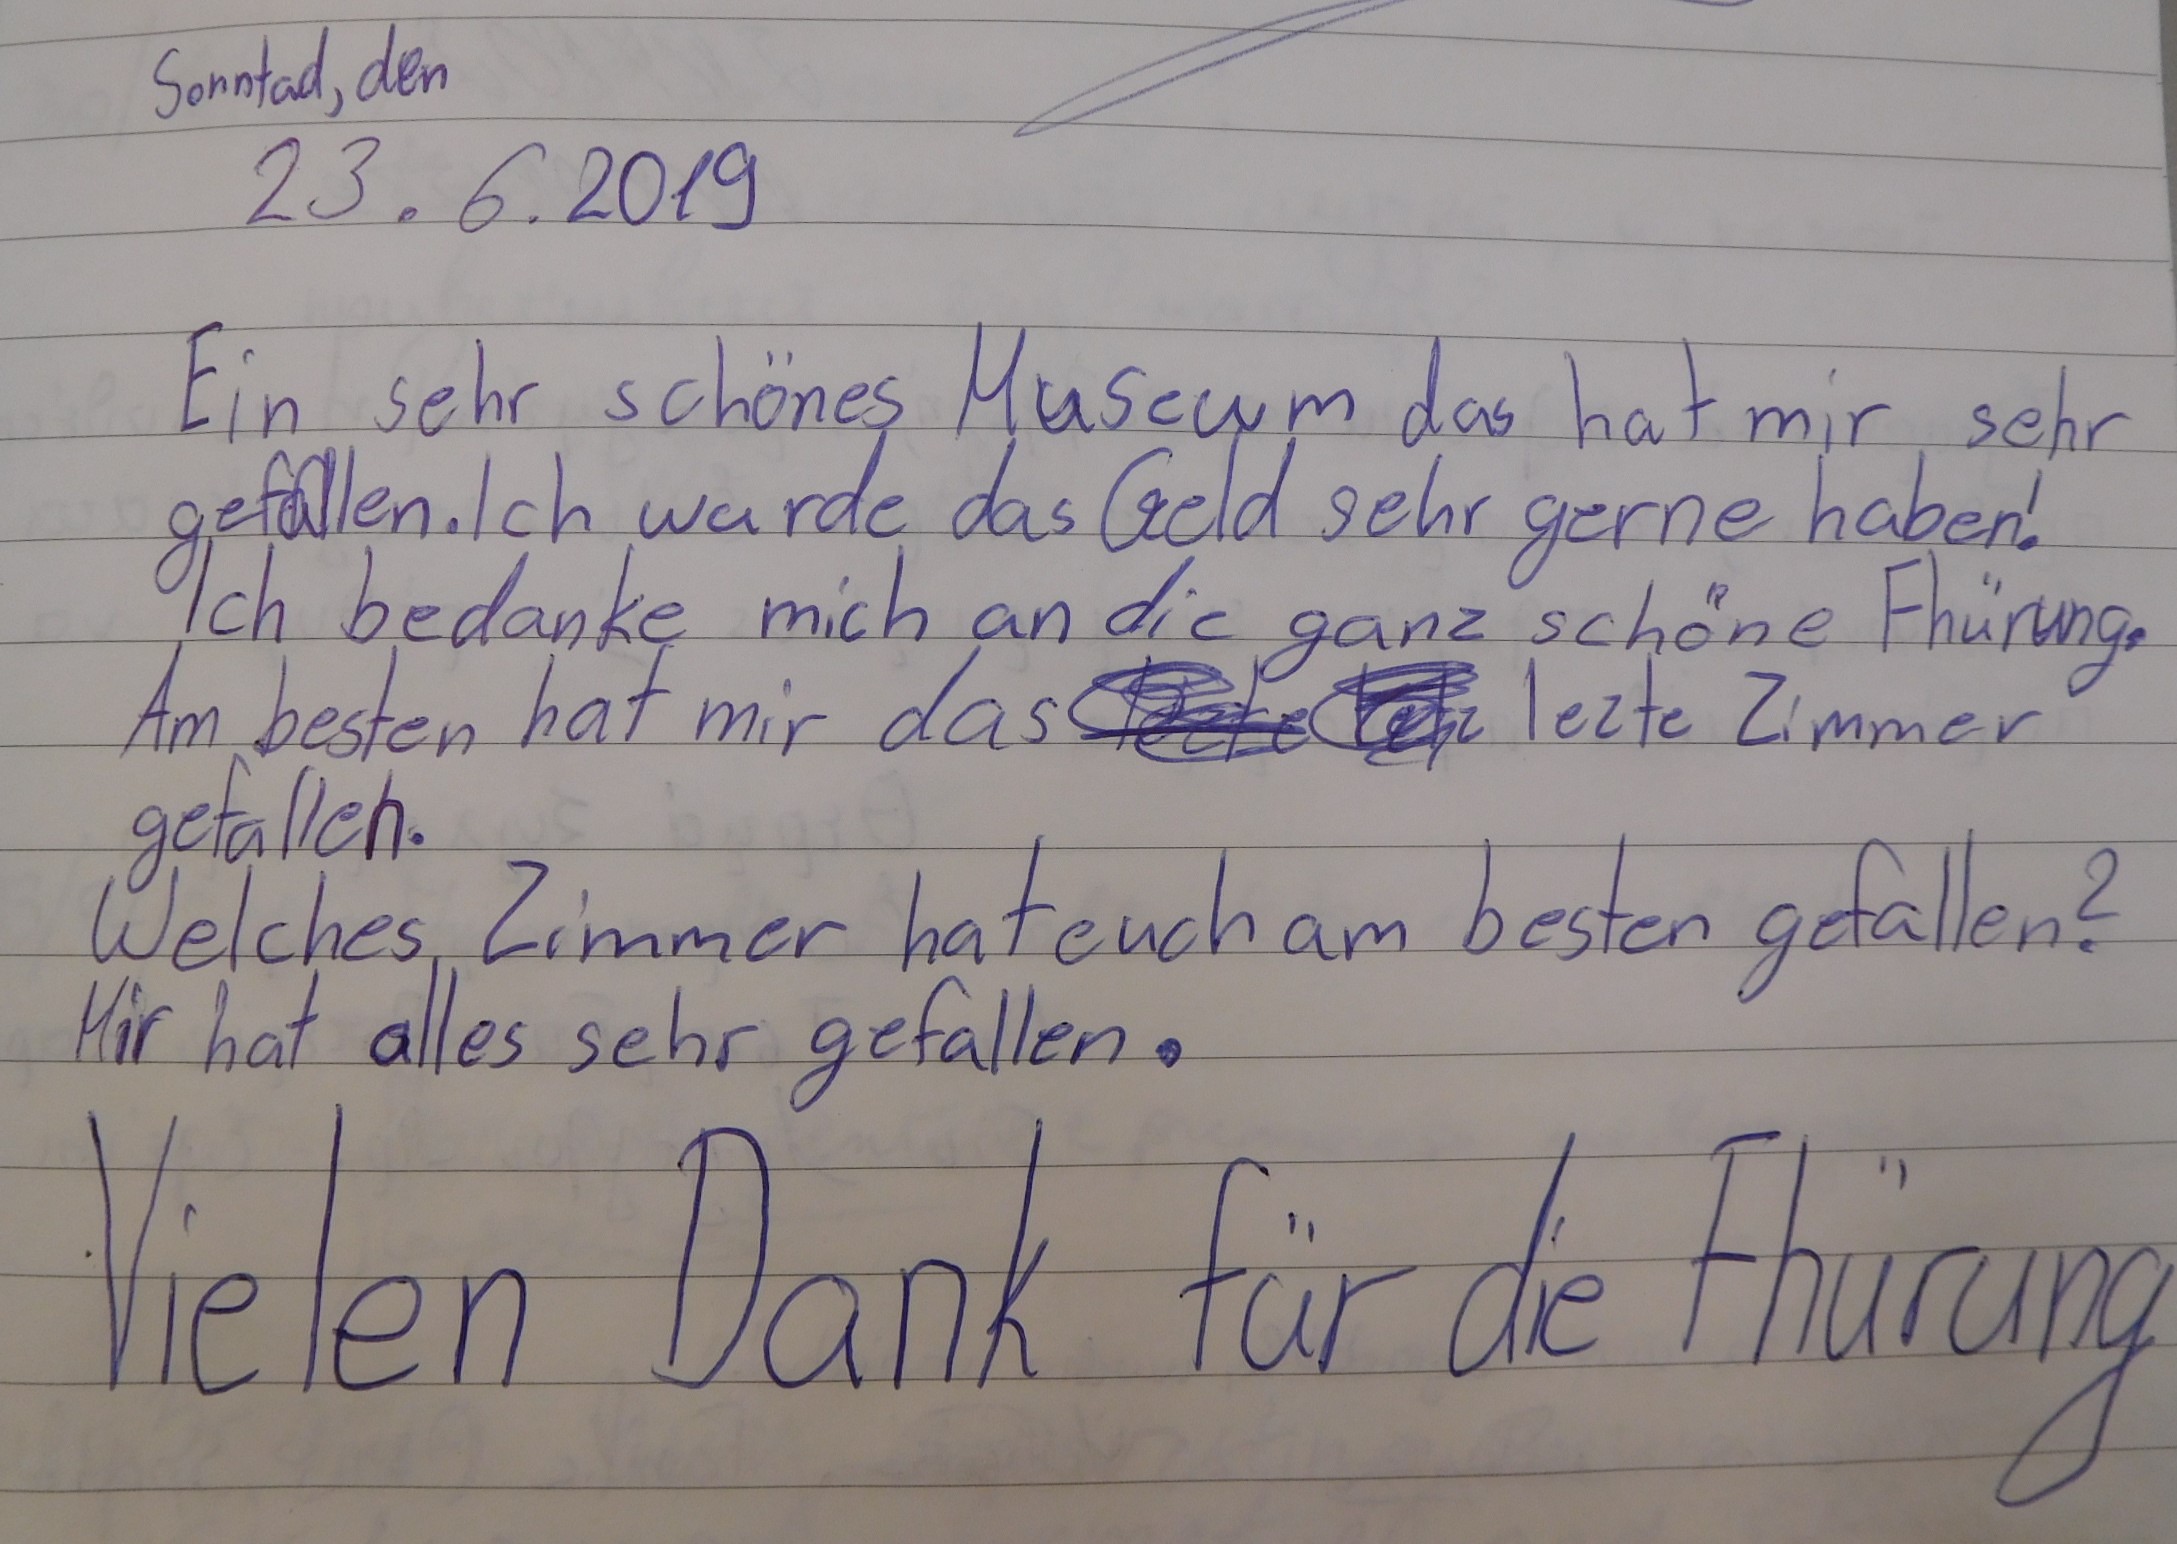 Sonntad, den
23.6.2019
Ein sehr schönes Museum das hat mir sehr
gefallen. Ich wurde das Geld sehr gerne haben!
Ich bedanke mich an die ganz schöne Fhürung.
Am besten hat mir das lezte Zimmer
gefallen.
Welches Zimmer hat euch am besten gefallen?
Mir hat alles sehr gefallen.
Vielen Dank für die Fhürung